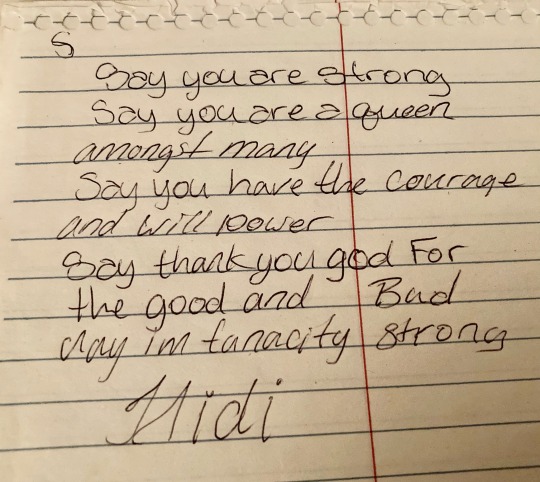 S
Say you are strong
Say you are a queen
amongst many
Say you have the courage
and will power
Say thank you god For
the good and Bad
day im tanacity strong
Hidi